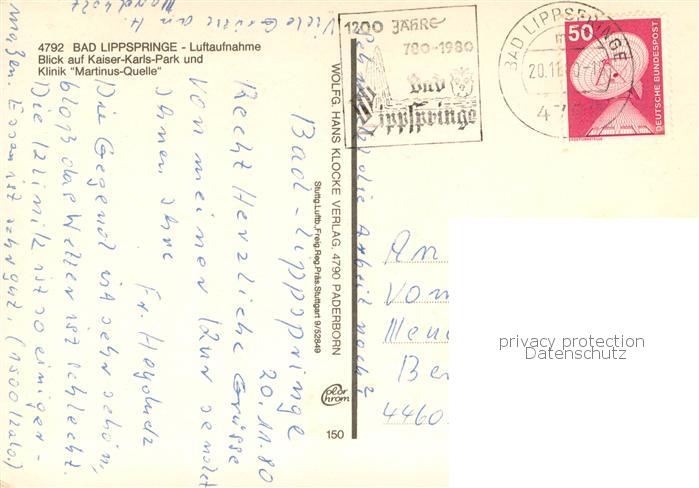 4792 BAD LIPPSPRINGE - Luftaufnahme
Blick auf Kaiser-Karls-Park und
Klinik "Martinus-Quelle"
1200 JAHRE
780-1980
Bad
Lippspringe
BAD LIPPSPRINGE
20.11.
50
DEUTSCHE BUNDESPOST
WOLFG. HANS KLOCKE VERLAG, 4790 PADERBORN
Stuttg. Luftb., Freig. Reg. Präs. Stuttgart 9/52849
Color
Chrom
150
Bad-Lippspringe
20.11.80
Recht Herzliche Grüsse
von meiner Kur sendet
Ihnen Ihre
Fr.
Die Gegend ist sehr schön,
bloß das Wetter ist schlecht.
Die Klinik ist so einiger-
maßen. Essen ist sehr gut. (1500 Kalo.)
Viele Grüsse an H.
die Arbeit noch?
An
4460
privacy protection
Datenschutz